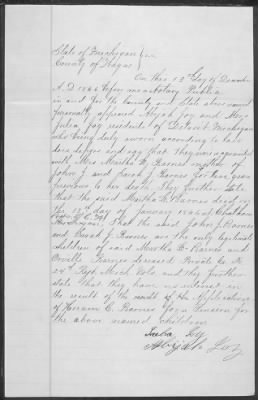 State of Michigan } ss
County of Wayne }
On this 13th day of December
A. D. 1886 before me a Notary Public
in and for the County and State above named
personally appeared Abijah Joy and
Julia Joy residents of Detroit Michigan
who being duly sworn according to law
do depose and say that they were acquainted
with Mrs Martha E. Barnes mother of
John J and Sarah J Barnes for two years
previous to her death. They further state
that the said Martha E. Barnes died on
the 12th day of January at Chatham
that the said John J. Barnes
and Sarah J. Barnes are the only legitimate
children of said Martha E. Barnes and
Orville Barnes deceased Private Co K
24th Regt Mich Vols and they further
state that they have no interest in
the result of the result of the application
of Hiram C. Barnes for a Pension for
the above named children
Julia Joy
Abijah Joy